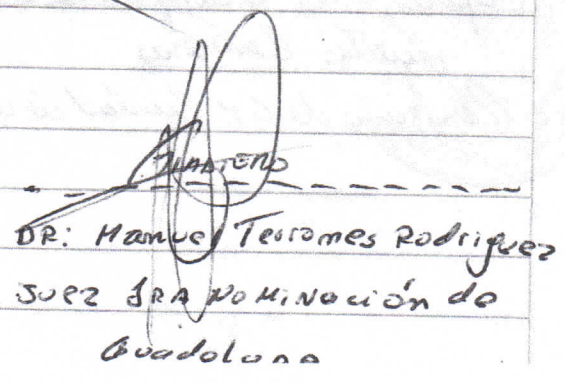 DR: Manuel Terromes Rodriguez
Juez 1RA NOMiNación de
Guadalupe